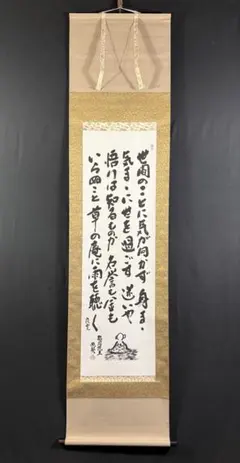 世間のことに気が向かず 身まゝ
気まゝに世を過ごす 迷いや
悟りは知るものか 名誉も金も
いら四こと 草の庵に雨を聴く